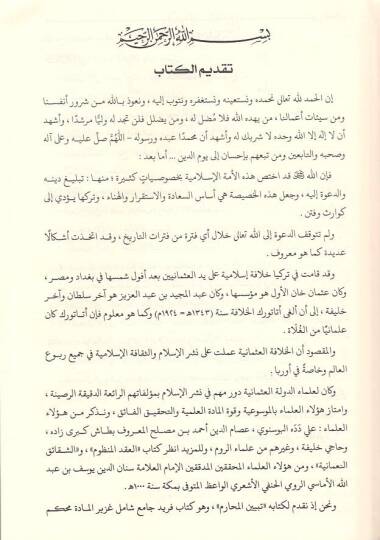 بسم الله الرحمن الرحيم
تقديم الكتاب
إن الحمد لله تعالى نحمده ونستعينه ونستغفره ونتوب إليه ، ونعوذ بالله من شرور أنفسنا
ومن سيئات أعمالنا ، من يهده الله فلا مُضل له ، ومن يضلل فلن تجد له وليًّا مرشدًا ، وأشهد
أن لا إله إلا الله وحده لا شريك له وأشهد أن محمدًا عبده ورسوله - اللَّهُمَّ صلِّ عليه وعلى آله
وصحبه والتابعين ومن تبعهم بإحسان إلى يوم الدين ... أما بعد :
فإن الله ﷻ قد اختص هذه الأمة الإسلامية بخصوصياتٍ كثيرة ؛ منها : تبليغ دينه
والدعوة إليه ، وجعل هذه الخصيصة هي أساس السعادة والاستقرار والهناء ، وتركها يؤدي إلى
كوارث وفتن .
ولم تتوقف الدعوة إلى الله تعالى خلال أي فترة من فترات التاريخ ، وقد اتخذت أشكالًا
عديدة كما هو معروف .
وقد قامت في تركيا خلافة إسلامية على يد العثمانيين بعد أفول شمسها في بغداد ومصر ،
وكان عثمان خان الأول هو مؤسسها ، وكان عبد المجيد بن عبد العزيز هو آخر سلطان وآخر
خليفة ، إلى أن ألغى أتاتورك الخلافة سنة (١٣٤٣هـ - ١٩٢٤م) وكما هو معلوم فإن أتاتورك كان
علمانيًّا من الغُلاة .
والمقصود أن الخلافة العثمانية عملت على نشر الإسلام والثقافة الإسلامية في جميع ربوع
العالم وخاصةً في أوربا .
وكان لعلماء الدولة العثمانية دور مهم في نشر الإسلام بمؤلفاتهم الرائعة الدقيقة الرصينة ،
وامتاز هؤلاء العلماء بالموسوعية وقوة المادة العلمية والتحقيق الفائق ، ونذكر من هؤلاء
العلماء : علي دَدَه البوسنوي ، عصام الدين أحمد بن مصلح المعروف بطاش كبرى زاده ،
وحاجي خليفة ، وغيرهم من علماء الروم ، وللمزيد انظر كتاب «العقد المنظوم» ، و«الشقائق
النعمانية» ، ومن هؤلاء العلماء المحققين المدققين الإمام العلامة سنان الدين يوسف بن عبد
الله الأماسي الرومي الحنفي الأشعري الواعظ المتوفى بمكة سنة ١٠٠٠هـ .
ونحن إذ نقدم لكتابه «تبيين المحارم» ، وهو كتاب فريد جامع شامل غزير المادة محكم